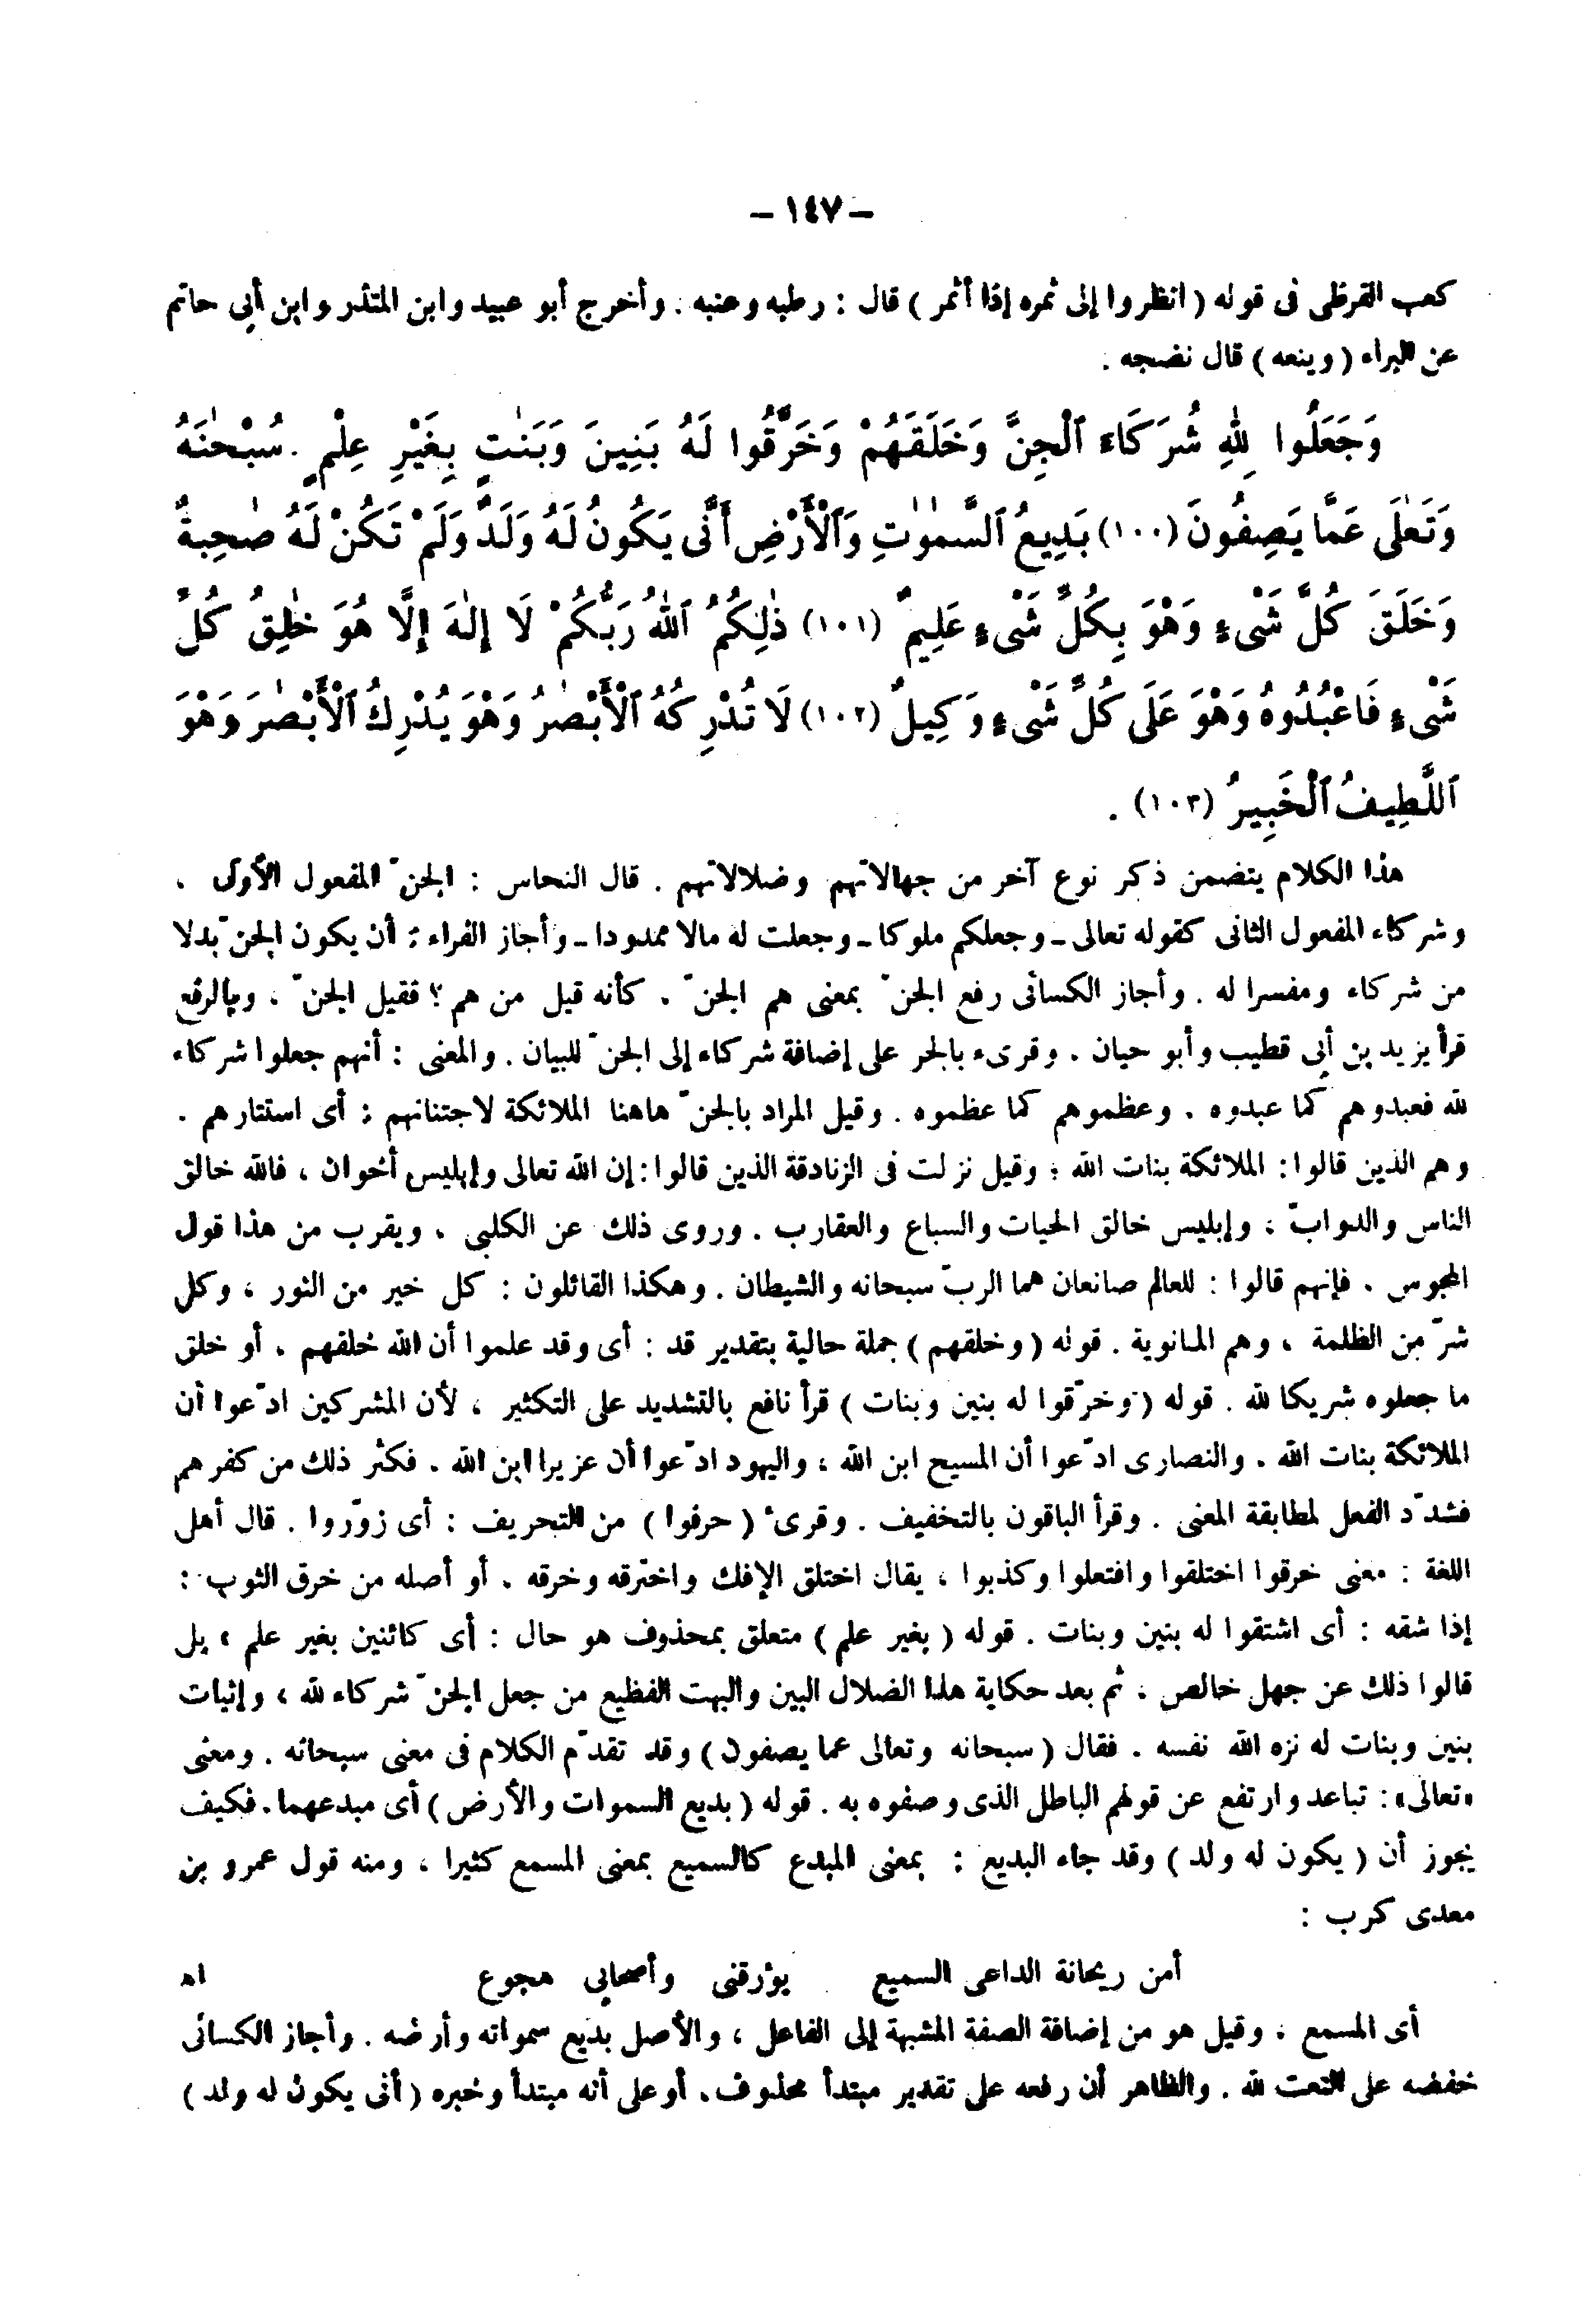 – ١٤٧ –
كعب القرظى فى قوله ( انظروا إلى ثمره إذا أثمر ) قال : رطبه وعنبه . وأخرج أبو عبيد وابن المنذر وابن أبى حاتم
عن البراء ( وينعه ) قال نضجه .
وَجَعَلُوا لِلّٰهِ شُرَكَاءَ ٱلْجِنَّ وَخَلَقَهُمْ وَخَرَّقُوا لَهُ بَنِينَ وَبَنَٰتٍ بِغَيْرِ عِلْمٍ . سُبْحَٰنَهُ
وَتَعَٰلَى عَمَّا يَصِفُونَ (١٠٠) بَدِيعُ ٱلسَّمَٰوَٰتِ وَٱلْأَرْضِ أَنَّى يَكُونُ لَهُ وَلَدٌ وَلَمْ تَكُنْ لَهُ صَٰحِبةٌ
وَخَلَقَ كُلَّ شَىْءٍ وَهْوَ بِكُلِّ شَىْءٍ عَلِيمٌ (١٠١) ذَٰلِكُمُ ٱللّٰهُ رَبُّكُمْ لَا إِلَٰهَ إِلَّا هُوَ خَٰلِقُ كُلِّ
شَىْءٍ فَاعْبُدُوهُ وَهْوَ عَلَى كُلِّ شَىْءٍ وَكِيلٌ (١٠٢) لَا تُدْرِكُهُ ٱلْأَبْصَٰرُ وَهْوَ يُدْرِكُ ٱلْأَبْصَٰرَ وَهْوَ
ٱللَّطِيفُ ٱلْخَبِيرُ (١٠٣) .
هذا الكلام يتضمن ذكر نوع آخر من جهالاتهم وضلالاتهم . قال النحاس : الجنّ المفعول الأول ،
وشركاء المفعول الثانى كقوله تعالى ـ وجعلكم ملوكا ـ وجعلت له مالا ممدودا ـ وأجاز الفراء : أن يكون الجنّ بدلا
من شركاء ومفسرا له . وأجاز الكسائى رفع الجنّ بمعنى هم الجنّ ، كأنه قيل من هم ؟ فقيل الجنّ ، وبالرفع
قرأ يزيد بن أبى قطيب وأبو حيان ، وقرىء بالجر على إضافة شركاء إلى الجنّ للبيان . والمعنى : أنهم جعلوا شركاء
لله فعبدوهم كما عبدوه ، وعظموهم كما عظموه . وقيل المراد بالجنّ هاهنا الملائكة لاجتنانهم : أى استتارهم ،
وهم الذين قالوا : الملائكة بنات الله ؛ وقيل نزلت فى الزنادقة الذين قالوا : إن الله تعالى وإبليس أخوان ، فالله خالق
الناس والدوابّ ، وإبليس خالق الحيات والسباع والعقارب . وروى ذلك عن الكلبى ، ويقرب من هذا قول
المجوس ، فإنهم قالوا : للعالم صانعان هما الربّ سبحانه والشيطان . وهكذا القائلون : كل خير من النور ، وكل
شرّ من الظلمة ، وهم المانوية . قوله ( وخلقهم ) جملة حالية بتقدير قد : أى وقد علموا أن الله خلقهم ، أو خلق
ما جعلوه شريكا لله . قوله ( وخرّقوا له بنين وبنات ) قرأ نافع بالتشديد على التكثير ، لأن المشركين ادّعوا أن
الملائكة بنات الله ، والنصارى ادّعوا أن المسيح ابن الله ، واليهود ادّعوا أن عزيرا ابن الله ، فكثر ذلك من كفرهم
فشدّد الفعل لمطابقة المعنى . وقرأ الباقون بالتخفيف . وقرىء ( حرفوا ) من التحريف : أى زوّروا . قال أهل
اللغة : معنى خرقوا اختلقوا وافتعلوا وكذبوا ، يقال اختلق الإفك واخترقه وخرقه ، أو أصله من خرق الثوب :
إذا شقه : أى اشتقوا له بنين وبنات . قوله ( بغير علم ) متعلق بمحذوف هو حال : أى كائنين بغير علم ، بل
قالوا ذلك عن جهل خالص ، ثم بعد حكاية هذا الضلال البين والبهت الفظيع من جعل الجنّ شركاء لله ، وإثبات
بنين وبنات له نزه الله نفسه ، فقال ( سبحانه وتعالى عما يصفون ) وقد تقدّم الكلام فى معنى سبحانه . ومعنى
«تعالى» : تباعد وارتفع عن قولهم الباطل الذى وصفوه به . قوله ( بديع السموات والأرض ) أى مبدعهما ، فكيف
يجوز أن ( يكون له ولد ) وقد جاء البديع : بمعنى المبدع كالسميع بمعنى المسمع كثيرا ، ومنه قول عمرو بن
معدى كرب :
أمن ريحانة الداعى السميع يؤرقنى وأصحابى هجوع اه
أى المسمع ، وقيل هو من إضافة الصفة المشبهة إلى الفاعل ، والأصل بديع سمواته وأرضه . وأجاز الكسائى
خفضه على النعت لله . والظاهر أن رفعه على تقدير مبتدأ محذوف ، أو على أنه مبتدأ وخبره ( أنى يكون له ولد )